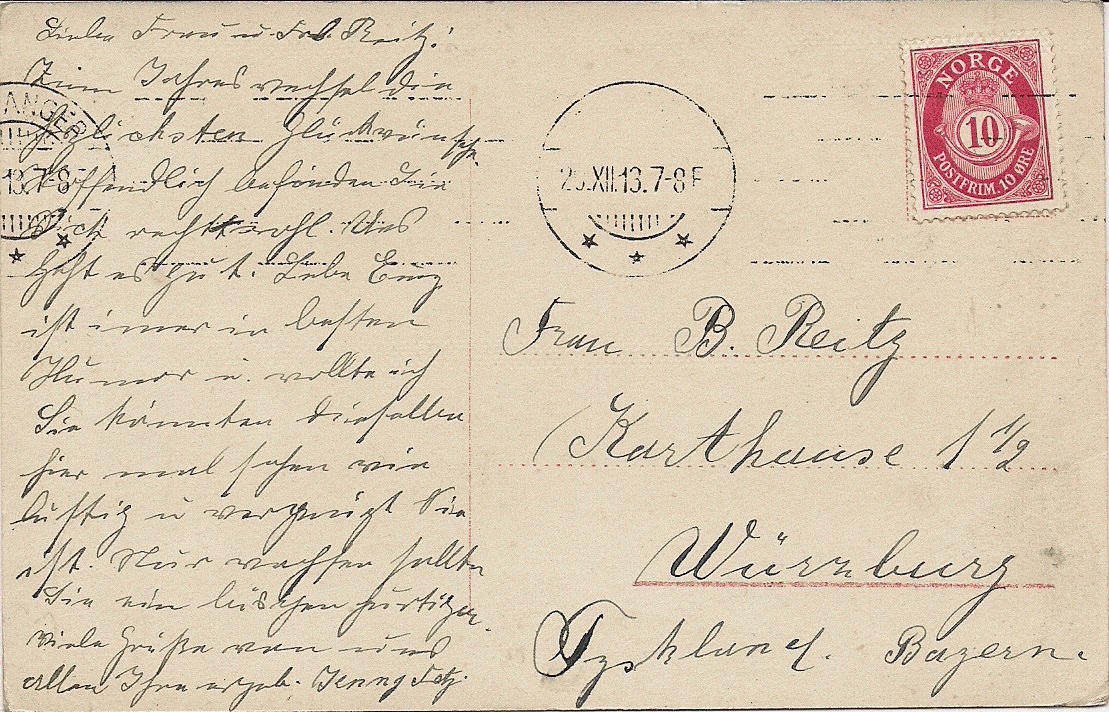 Liebe Frau u. Frl. Reitz!
Zum Jahreswechsel die
herzlichsten Glückwünsche
Hoffendlich befinden Sie
sich recht wohl. Uns
geht es gut. Liebe
ist imer in besten
Humor u. wollte ich
Sie könnten dieselbe
hier mal sehen wie
luftig u vergnügt Sie
ist. Nur wachsen sollte
Sie ein bischen hurtiger.
Viele Grüße von uns
allen Ihre ergeb. Jenny
ANGER
13.7-8F
.XII.13.7-8F
NORGE
10
POSTFRIM. 10 ØRE
Frau B. Reitz
Karthause 1 1/2
Würzburg
Tyskland. Bayern.